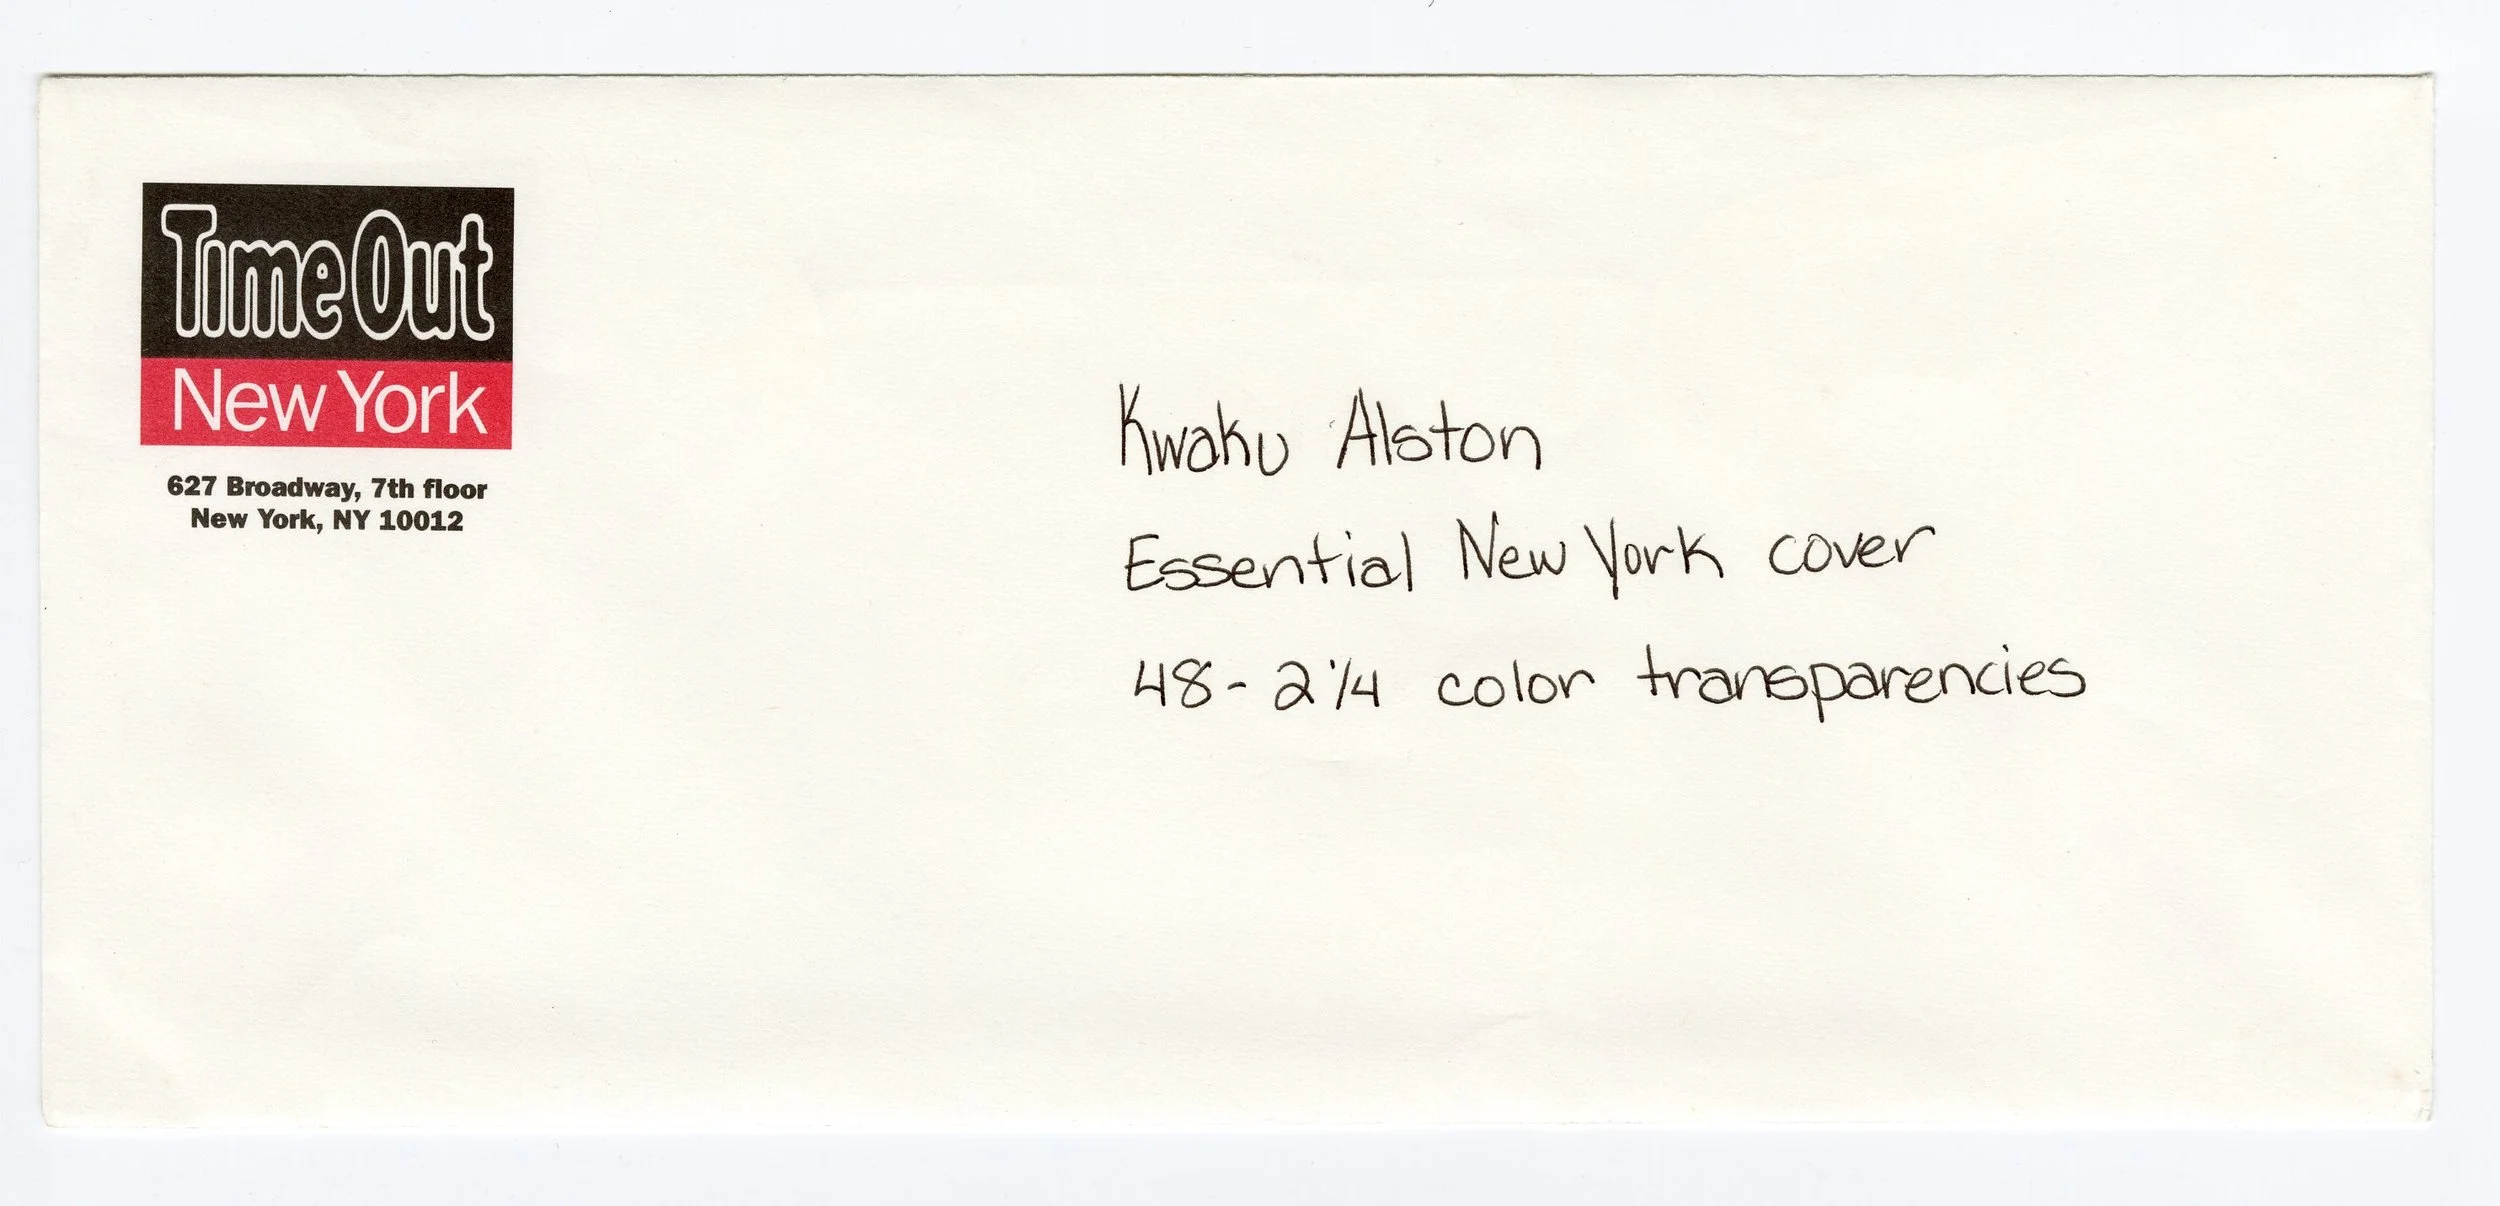 Time Out
New York
627 Broadway, 7th floor
New York, NY 10012
Kwaku Alston
Essential New York cover
48 - 2 1/4 color transparencies